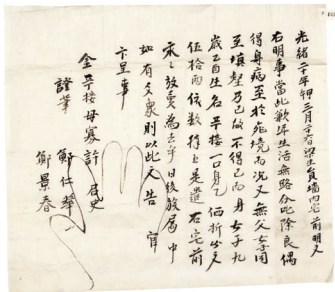 光緒二十年甲午三月日梁生員宅前明文
右明事當此歉年生活無路分叱除良偶
得身病至於死境而況又無父母
至填壑乃已故不得已而身女子九
歲乙酉生名平接一口身乙価折文
伍拾両依數捧上是遣右宅前
永永放賣為去乎日後族屬中
如有爻象則以此文告官
卞呈事
金平接母寡許召史
證筆 鄭仁
鄭景春